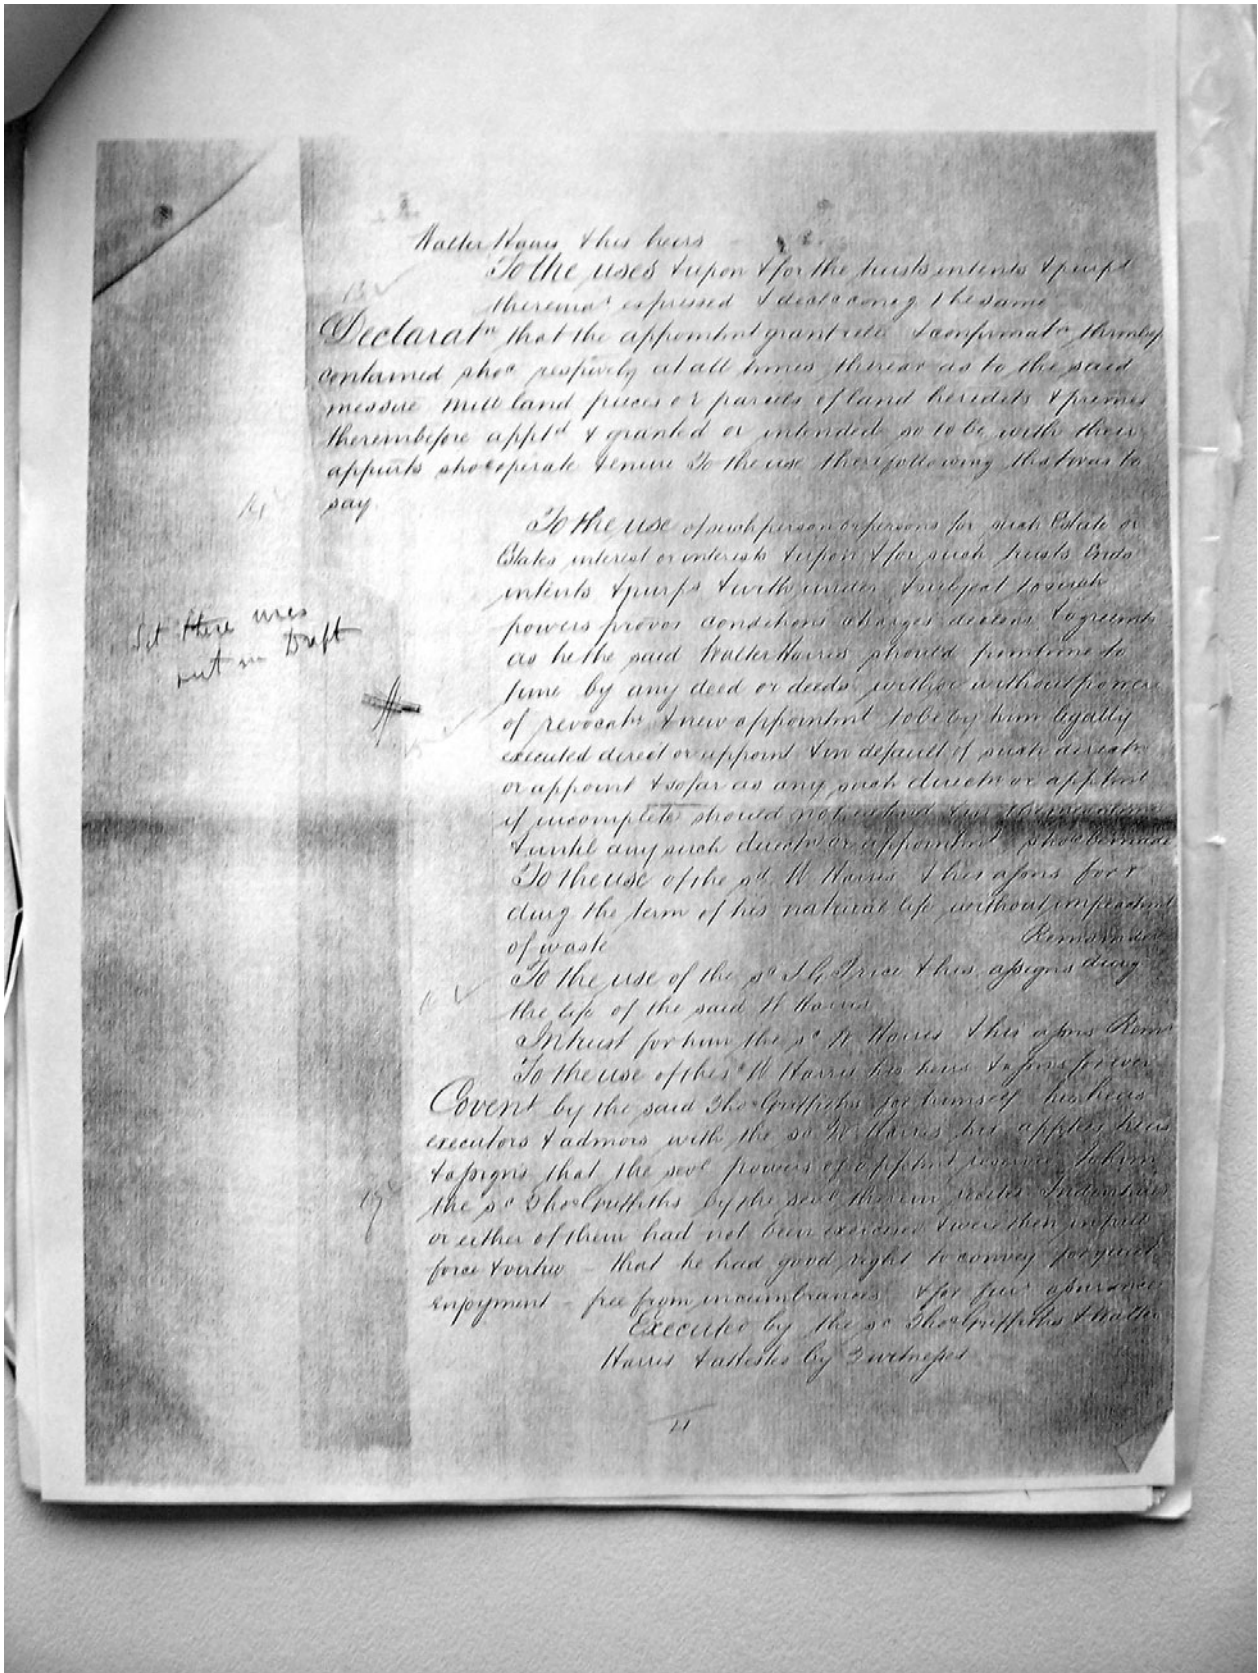 Walter Harris & his heirs
To the uses & upon & for the trusts intents & purps
thereinar expressed & decld concg the same
13
Declaratn that the appointmt grant rele & confirmatn thereby
contained shod respively at all times thereafr as to the said
messuie Mill land pieces or parcels of land heredits & premes
thereinbefore apptd & granted or intended so to be with their
appurts shod operate & enure To the use there following that was to
say
14
To the use of such person or persons for such Estate or
Estates interest or interests & upon & for such trusts Ends
intents & purps & with under & subject to such
powers provos conditions charges declons & agreemts
as he the said Walter Harris should from time to
time by any deed or deeds with or without power
of revocatn & new appointmt to be by him legally
executed direct or appoint & in default of such directn
or appoint & so far as any such directn or apptmt
if incomplete should not extend & in the meantime
& until any such directn or appointmt shod be made
Set these uses
out in Draft
15
To the use of the sd W Harris & his assns for &
durg the term of his natural life without impeachmt
of waste Remainder
16
To the use of the sd J. G. Price & his assigns durg
the life of the said W Harris
In trust for him the sd W Harris & his assns Remr
To the use of the sd W Harris his heirs & assns for ever
Covent by the said Thos Griffiths for himself his heirs
executors & admors with the sd W Harris his apptees heirs
& assigns that the sevl powers of apptmt reserved to him
17
the sd Thos Griffiths by the sevl therein recited Indentures
or either of them had not been exercised & were then in full
force & virtue – that he had good right to convey for quiet
Enjoyment – free from incumbrances & for furr assurance
Executed by the sd Thos Griffiths & Walter
Harris & attested by 2 witnesses